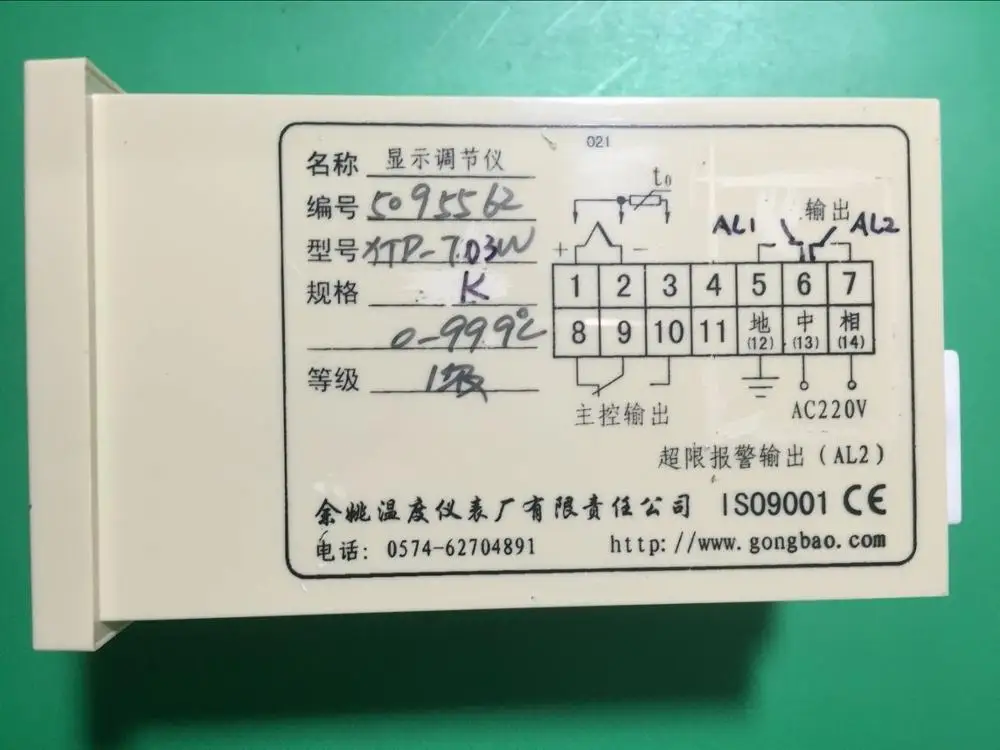 021
名称 显示调节仪
编号 5095562
型号 XTD-7.03W
规格 K
0-999℃
等级 1级
t₀
输出
AL1 AL2
+ −
1 2 3 4 5 6 7
8 9 10 11 地(12) 中(13) 相(14)
主控输出
AC220V
超限报警输出(AL2)
余姚温度仪表厂有限责任公司 ISO9001 CE
电话: 0574-62704891 http://www.gongbao.com